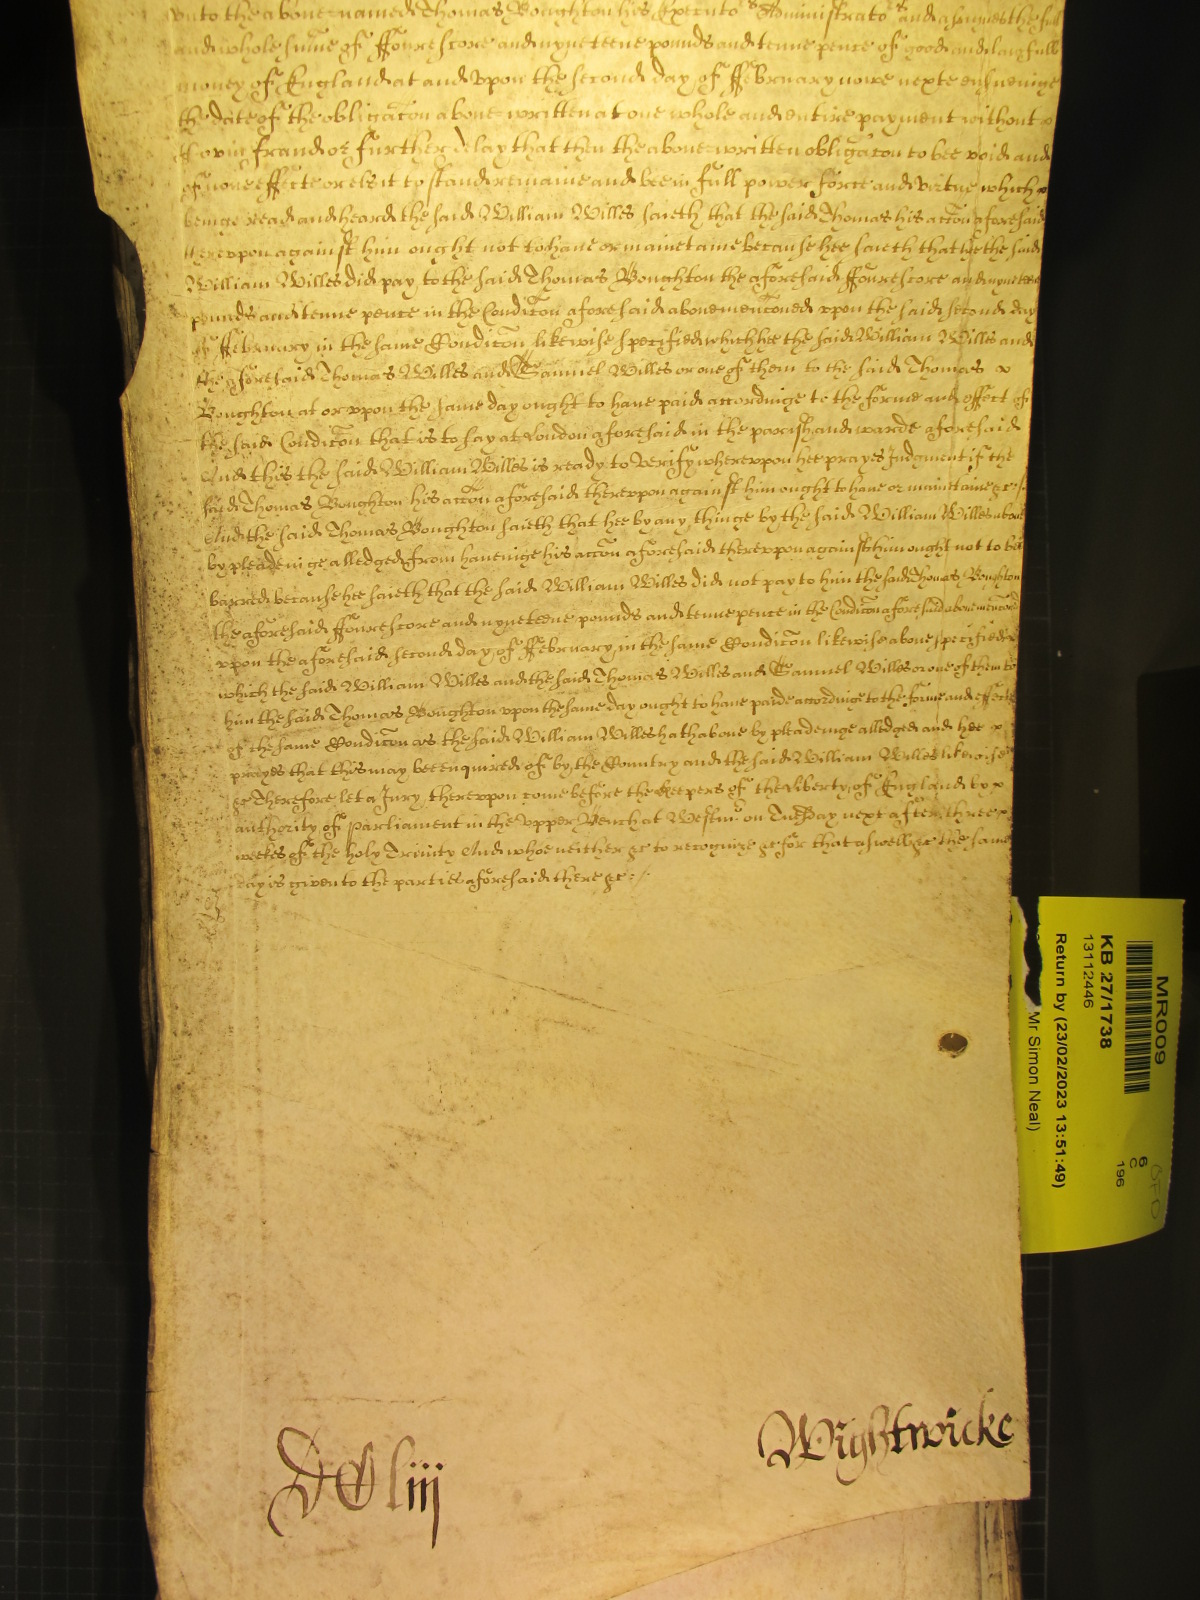 vnto the aboue named Thomas Boughton his Executors Administrators and assignes the full
and whole summe of ffourescore and nyneteene pounds and tenne pence of good and lawfull
money of England at and vpon the second day of ffebruary nowe nexte ensueinge
the date of the obligacon aboue written at one whole and entire payment without
Covin fraud or further delay that then the aboue written obligacon to bee void and
of none effecte or els it to stand remaine and bee in full power force and virtue which
beinge read and heard the said William Willes saieth that the said Thomas his accon aforesaid
therevpon against him ought not to haue or mainetaine because hee saieth that hee the said
William Willes did pay to the said Thomas Boughton the aforesaid ffourescore and nyneteene
pounds and tenne pence in the Condicon aforesaid abouemenconed vpon the said second day
of ffebruary in the same Condicon likewise specified which hee the said William Willes and
the aforesaid Thomas Willes and Samuel Willes or one of them to the said Thomas
Boughton at or vpon the same day ought to haue paid accordinge to the forme and effect of
the said Condicon that is to say at London aforesaid in the parish and warde aforesaid
And this the said William Willes is ready to verify wherevpon hee prayes Judgment if the
said Thomas Boughton his accon aforesaid therevpon against him ought to haue or maintaine &c
And the said Thomas Boughton saieth that hee by any thinge by the said William Willes aboue
by pleadeinge alledged from haueinge his accon aforesaid therevpon against him ought not to bee
barred because hee saieth that the said William Willes did not pay to him the said Thomas Boughton
the aforesaid ffourescore and nyneteene pounds and tenne pence in the Condicon aforesaid abouemenconed
vpon the aforesaid second day of ffebruary in the same Condicon likewise aboue specified
which the said William Willes and the said Thomas Willes and Samuel Willes or one of them to
him the said Thomas Boughton vpon the same day ought to haue paide accordinge to the forme and effecte
of the same Condicon as the said William Willes hath aboue by pleadeinge alledged and hee
prayes that this may bee enquired of by the Country and the said William Willes likewise
&c Therefore let a Jury therevpon come before the keepers of the liberty of England by
authority of Parliament in the vpper Bench at Westmr on Tuesday next after three
weekes of the holy Trinity And whoe neither &c to recognize &c for that aswell &c the same
day is given to the parties aforesaid there &c
DCliij
Wightwicke
MR009
KB 27/1738
13112446
Return by (23/02/2023 13:51:49)
Mr Simon Neal)
6
C
196